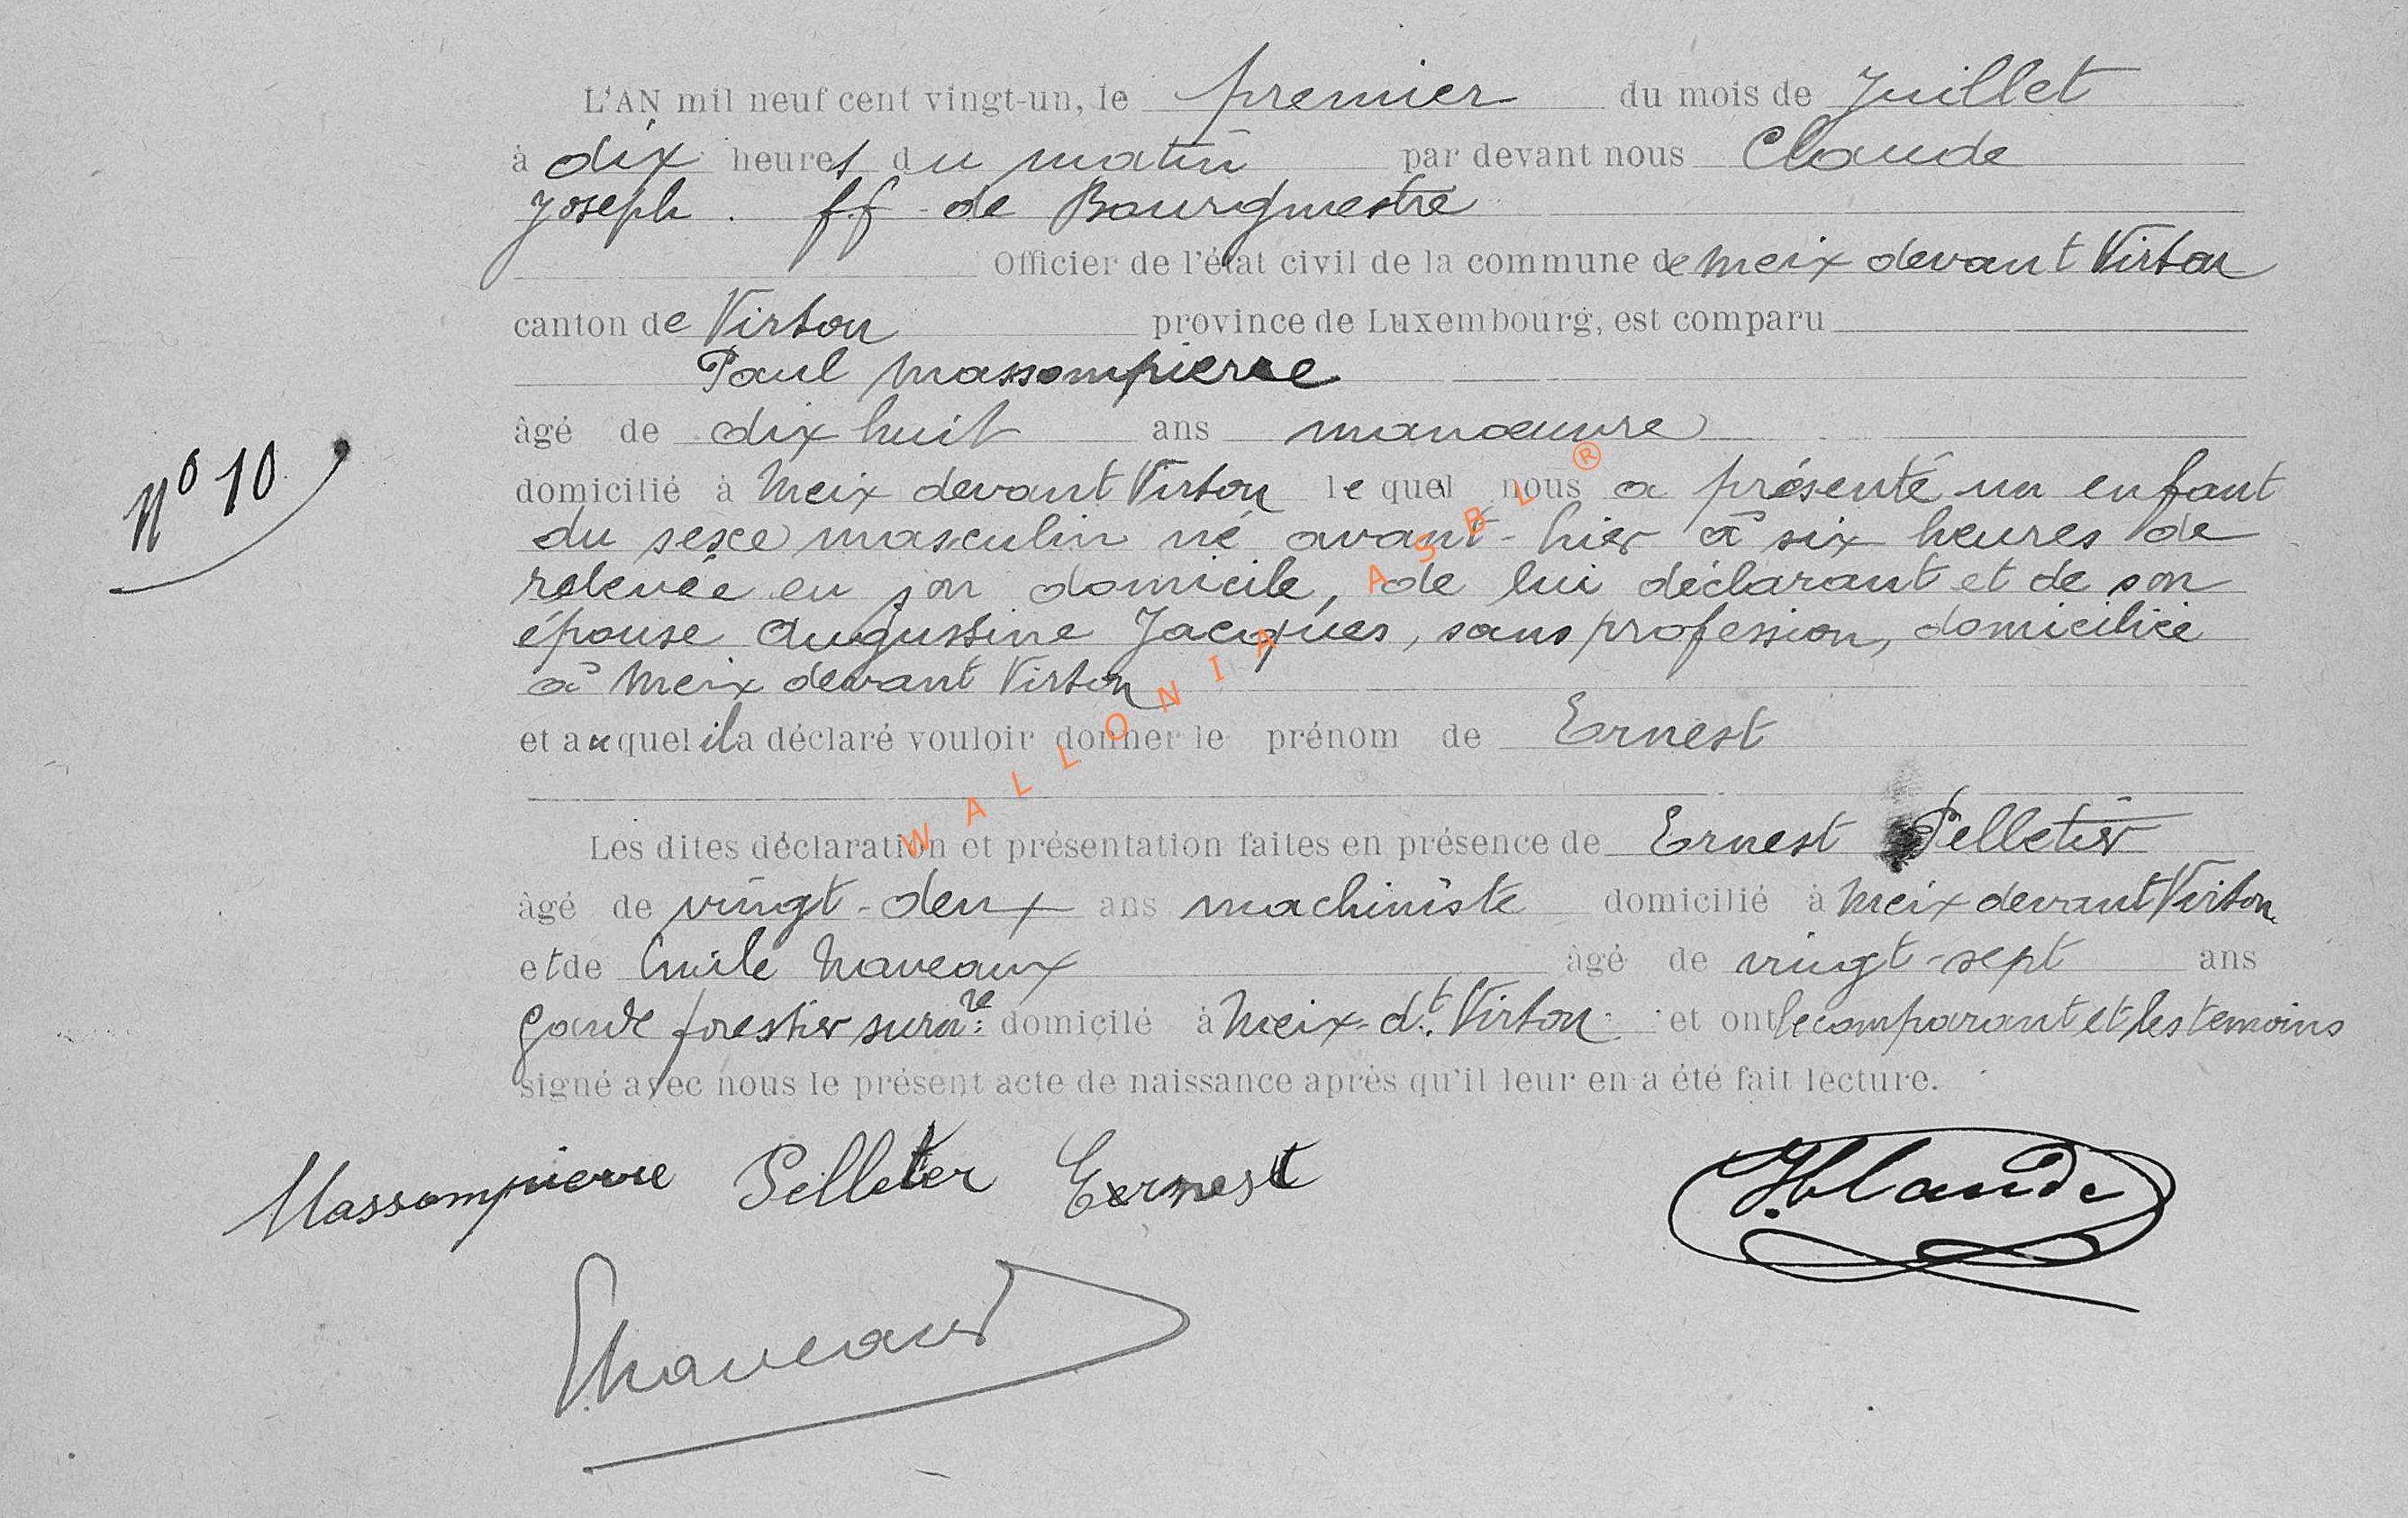 L'AN mil neuf cent vingt-un, le premier du mois de Juillet
à dix heures du matin par devant nous Claude
Joseph . ff de Bourgmestre
Officier de l'état civil de la commune de Meix devant Virton
canton de Virton province de Luxembourg, est comparu
Paul Massompierre
âgé de dix huit ans manœuvre
domicilié à Meix devant Virton le quel nous a présenté un enfant
N° 10
du sexe masculin né avant-hier à six heures de
relevée en son domicile, de lui déclarant et de son
épouse Augustine Jacques, sans profession, domiciliée
à Meix devant Virton
et auquel il a déclaré vouloir donner le prénom de Ernest
WALLONIA ASBL ®
Les dites déclaration et présentation faites en présence de Ernest Pelleter
âgé de vingt-deux ans machiniste domicilié à Meix devant Virton
et de Emile Naveaux âgé de vingt-sept ans
Garde forestier surnre: domicilé à Meix-dt. Virton et ont le comparant et les temoins
signé avec nous le présent acte de naissance après qu'il leur en a été fait lecture.
Massompierre Pelleter Ernest J. Claude
E. Naveaux